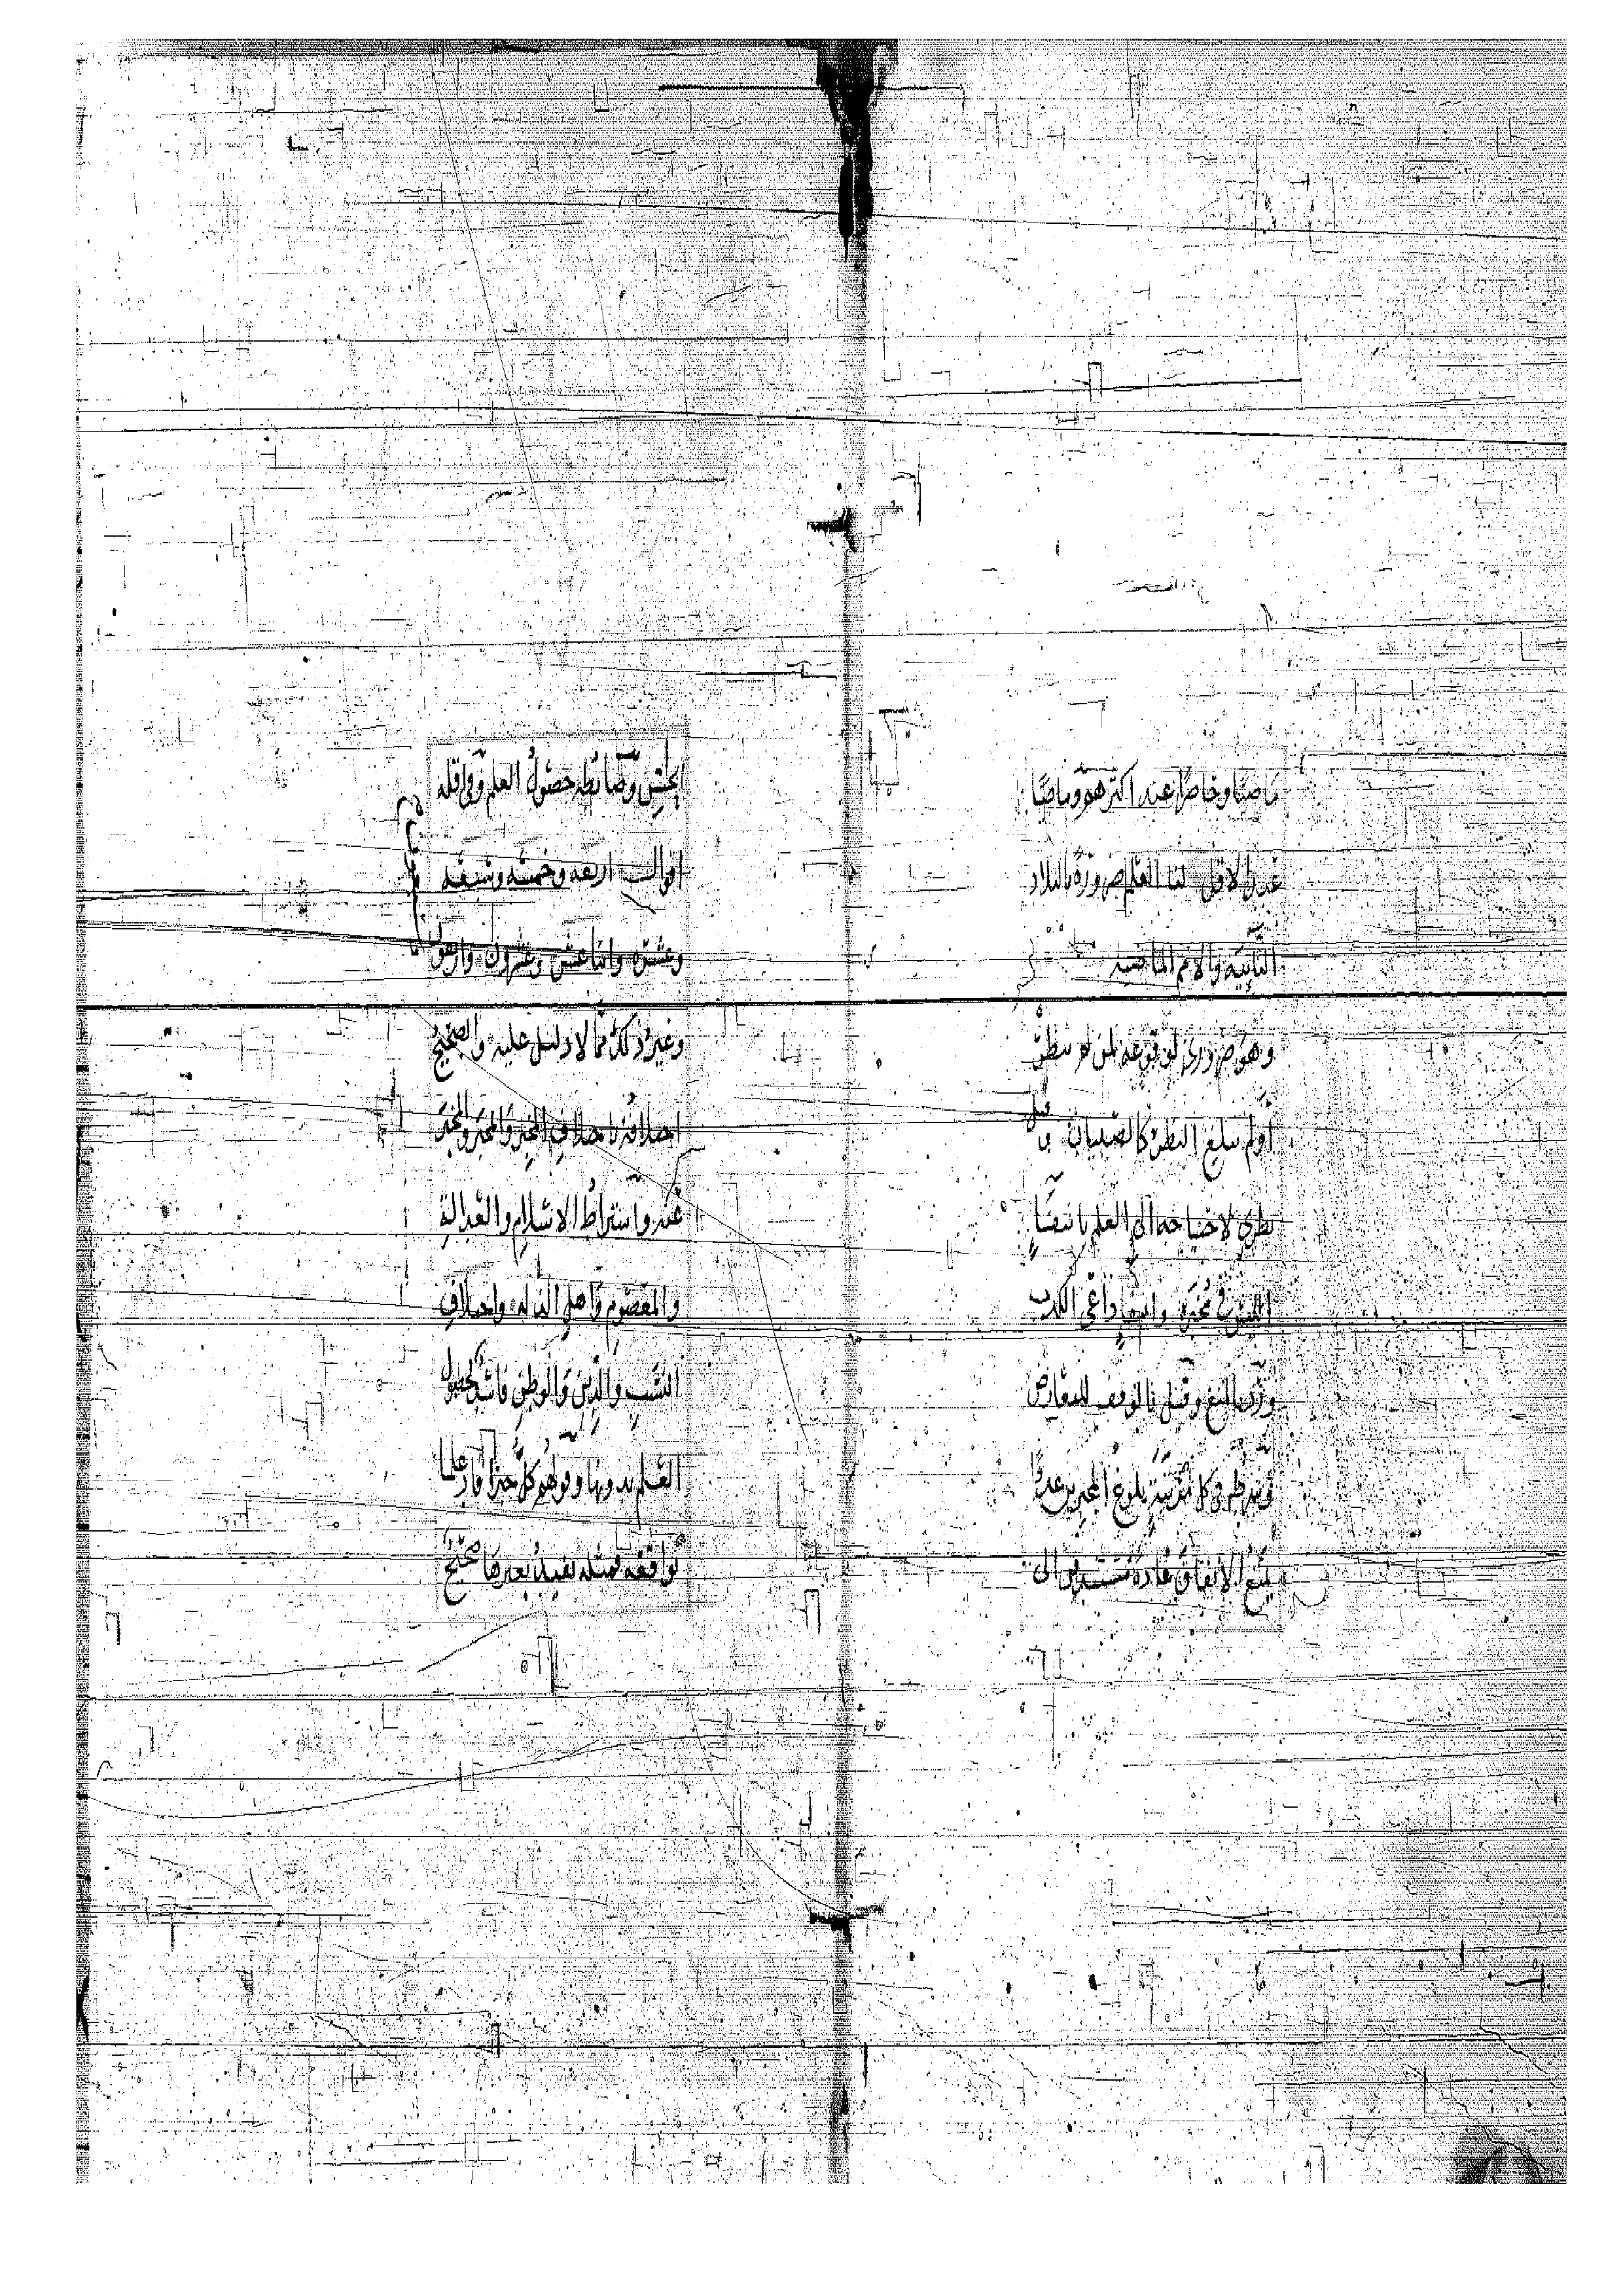 ماضيا وخاضرا عند اكثرهم وماضيا
عند الاقل لنا العلم ضرورة بالبلاد
النائيه والامم الماضيه
وهو ضروري لوقوعه لمن لم ينظر
او لم يبلغ النظر كالصبيان قيل
نظري لاحتياجه الى العلم بانتفا
اللبس في مخبره وانتفا داعي الكذب
ورد بالمنع وقيل بالوقف للتعارض
وشرطه في كل مرتبة بلوغ المخبرين عددا
يمنع الاتفاق عادة مستندين الى
الحس وضابطه حصول العلم وفي اقله
اقوال اربعه وخمسه وسبعه
وعشره واثنا عشر وعشرون واربعون
وغير ذلك مما لا دليل عليه والصحيح
اختلافه باختلاف المخبر والمخبر والمخبر
عنه واشتراط الاسلام والعدالة
والمعصوم واهل الذله واختلاف
النسب والدين والوطن فاسد لحصول
العلم بدونها وقولهم كل خبر افاد علما
لواقعه فمثله يفيد بغيرها صحيح